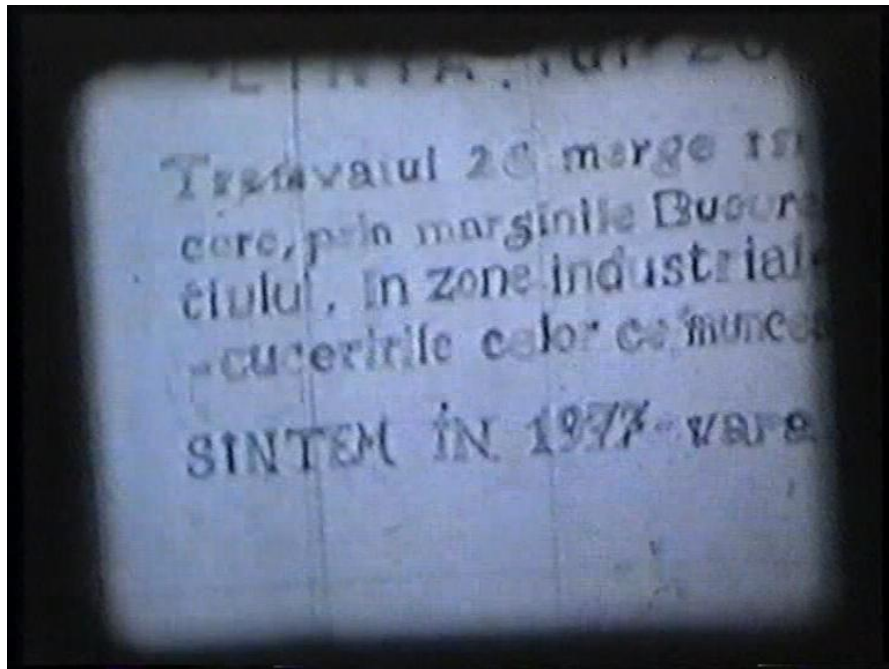 LINIA lui 26
Tramvaiul 26 merge
cerc, prin marginile Bucure
știului, in zone industriale
-cuceririle celor ce munces
SINTEM ÎN 1977-vara